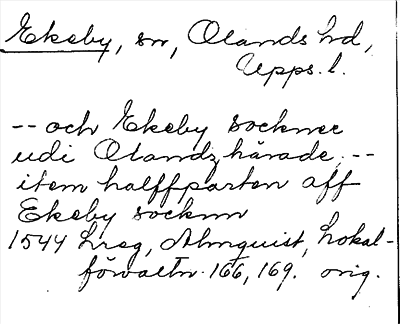 Ekeby, sn, Olands hd,
Upps. l.
-- och Ekeby socknee
udi Olandz härade, --
item halffparten aff
Ekeby socknn
1544 Lreg, Almquist, Lokal-
förvaltn. 166, 169. orig.